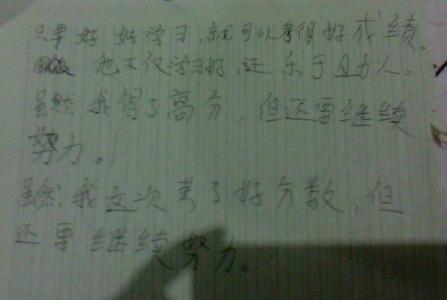 只要好好学习,就可以考得好成绩。
他不仅学习好,还乐于助人。
虽然我得了高分,但还要继续
努力。
虽然,我这次考了好分数,但
还要继续努力。